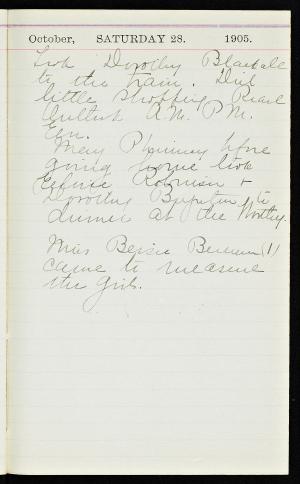 October, SATURDAY 28. 1905.
Took Dorothy Blaisdale
to the train. Did
little shopping Pearl
A.M. P.M.
Eve.
Mary before
going home took
Robinson +
Dorothy to
dinner at the Worthy.
Miss Bessie (1)
came to measure
the girls.